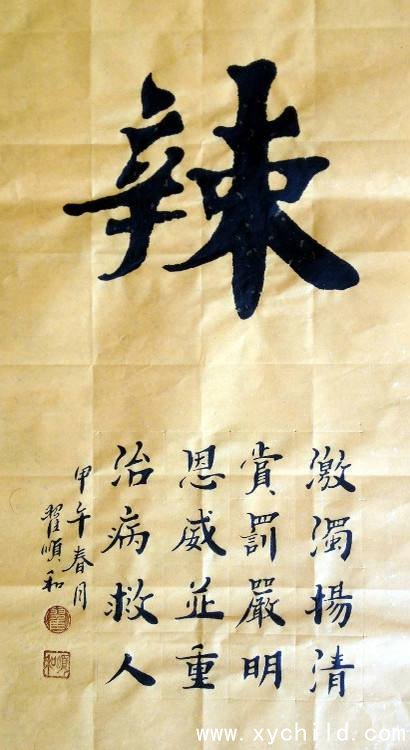 辣
激濁揚清
賞罰嚴明
恩威並重
治病救人
甲午春月
翟順和
www.xychild.com